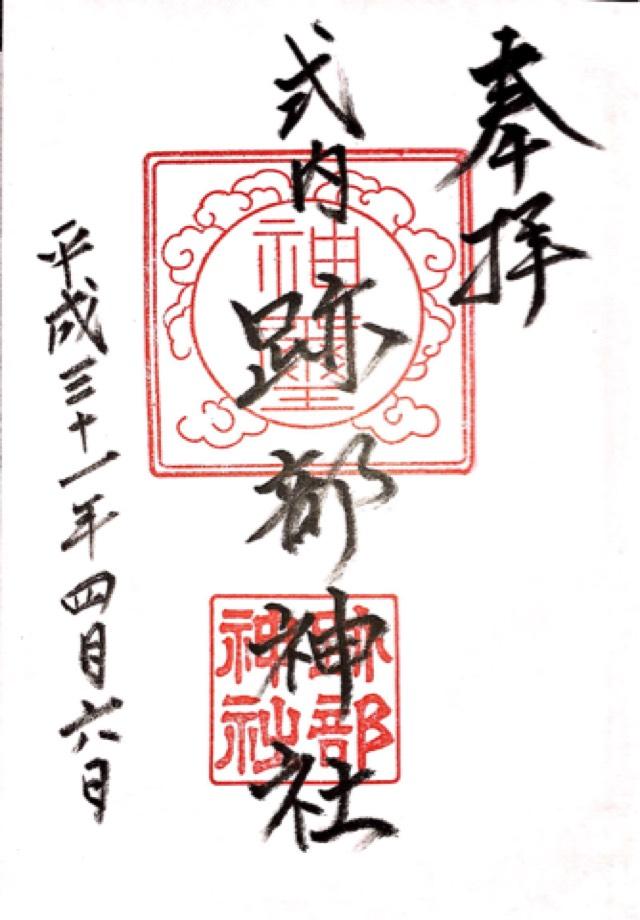 奉拝
式内 跡部神社
平成三十一年四月六日
神璽
跡部
神社